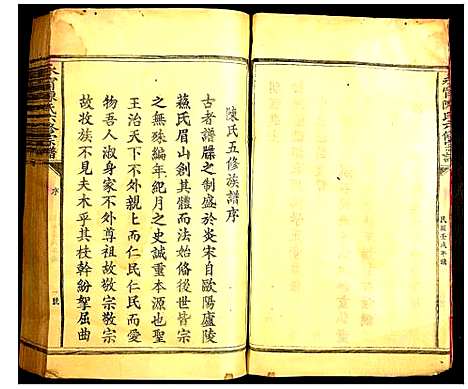 陳氏五修族譜序
古者譜牒之制盛於炎宋自歐陽廬陵
蘇氏眉山創其體而方法始備後世皆宗
之無殊編年紀月之史誠重本源也聖
王治天下不外親上而仁民仁民而愛
物吾人淑身家不外尊祖故敬宗敬宗
故收族不見夫木乎其枝幹紛挐屈曲
序